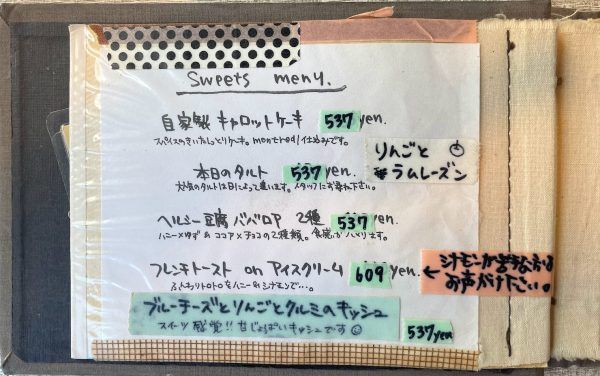 Sweets menu.
自家製 キャロットケーキ 537yen.
スパイスのきいたしっとりケーキ。montreal仕込みです。
本日のタルト 537yen.
りんごと
ラムレーズン
大人気のタルトは日によって違います。スタッフにお尋ね下さい。
ヘルシー豆腐ババロア 2種 537yen.
ハニー×ゆず & ココア×チョコの2種類。食感が
フレンチトースト on アイスクリーム 609yen.
ふんわりトロトロをハニー&シナモンで…。
← シナモンが苦手な方は
お声がけ下さい。
ブルーチーズとりんごとクルミのキッシュ
スイーツ感覚!! 甘じょっぱいキッシュです 537yen